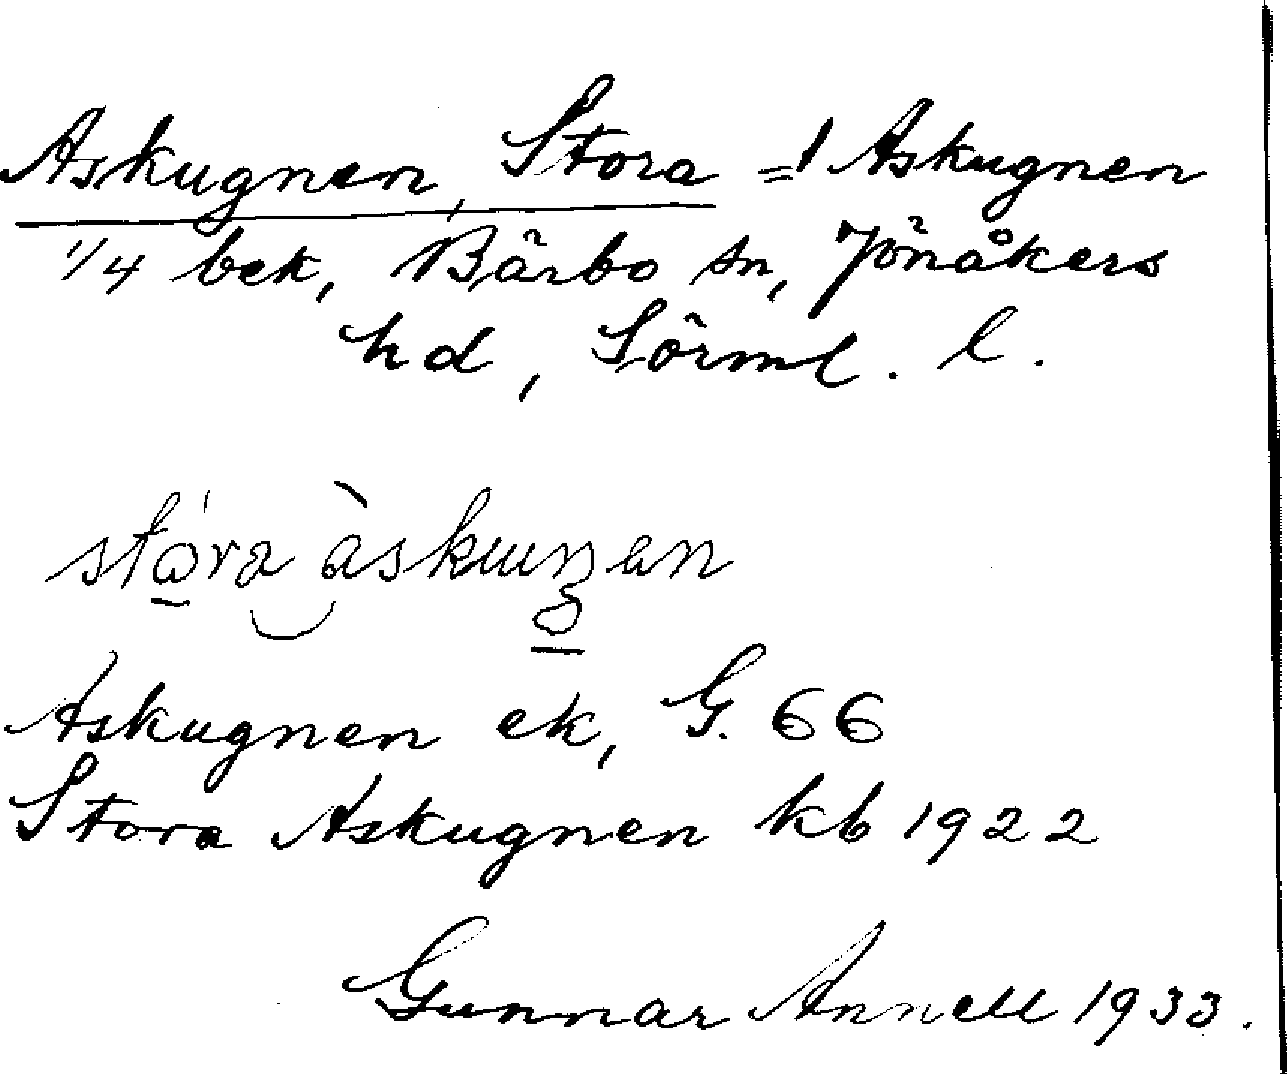 Askugnen, Stora = 1 Askugnen
1/4 bek, Bärbo sn, Jönåkers
hd, Sörml. l.
stora askuŋnen
Askugnen ek, G. 66
Stora Askugnen kb 1922
Gunnar Annell 1933.